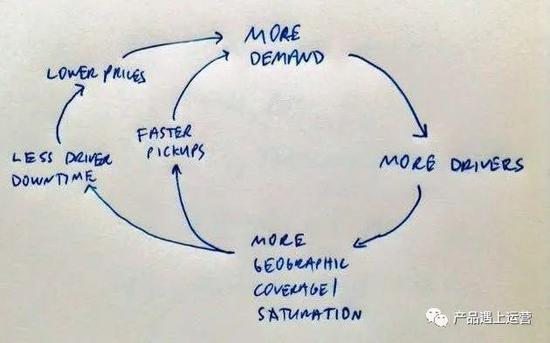 MORE
DEMAND
LOWER PRICES
FASTER
PICKUPS
LESS DRIVER
DOWNTIME
MORE DRIVERS
MORE
GEOGRAPHIC
COVERAGE/
SATURATION
产品遇上运营